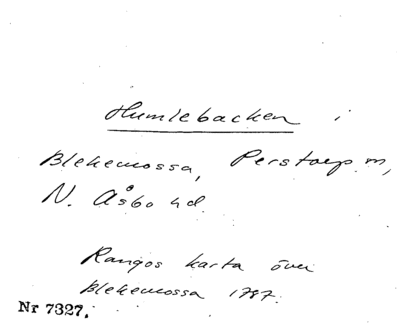 Humlebacken i
Blekemossa, Perstorp sn,
N. Åsbo hd.
Rangos karta över
Blekemossa 1787.
Nr 7327.